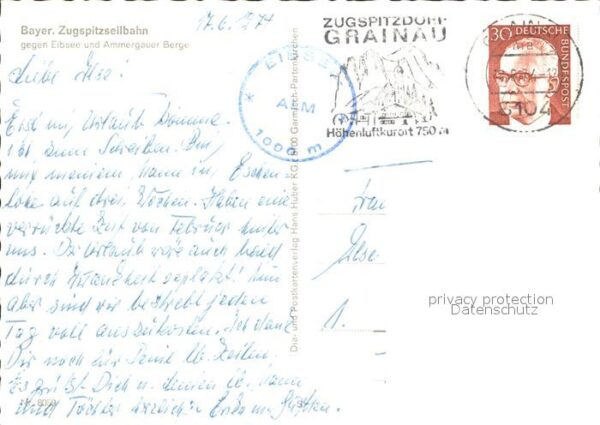 Bayer. Zugspitzseilbahn
gegen Eibsee und Ammergauer Berge
17.6.74
Liebe Ilse!
Erst im Urlaub komme
ich zum Schreiben. Bin
mit meinem Mann in
lohe auf drei Wochen. Haben eine
verrückte Zeit von Februar hinter
uns. Der Urlaub wäre auch bald
durch Krankheit geplatzt! Nun
aber sind wir bestrebt jeden
Tag voll auszukosten. Ich danke
Dir noch für Deine lb. Zeilen.
Es grüßt Dich u. deinen lb. Mann
und Töchter herzlich Erika u. Günther.
Nr. 8099
Dia- und Postkartenverlag Hans Huber KG 8100 Garmisch-Partenkirchen
EIBSEE
ALM
1000 m
ZUGSPITZDORF
GRAINAU
Höhenluftkurort 750 m
8104
30 DEUTSCHE
BUNDESPOST
Frau
Ilse
1.
privacy protection
Datenschutz